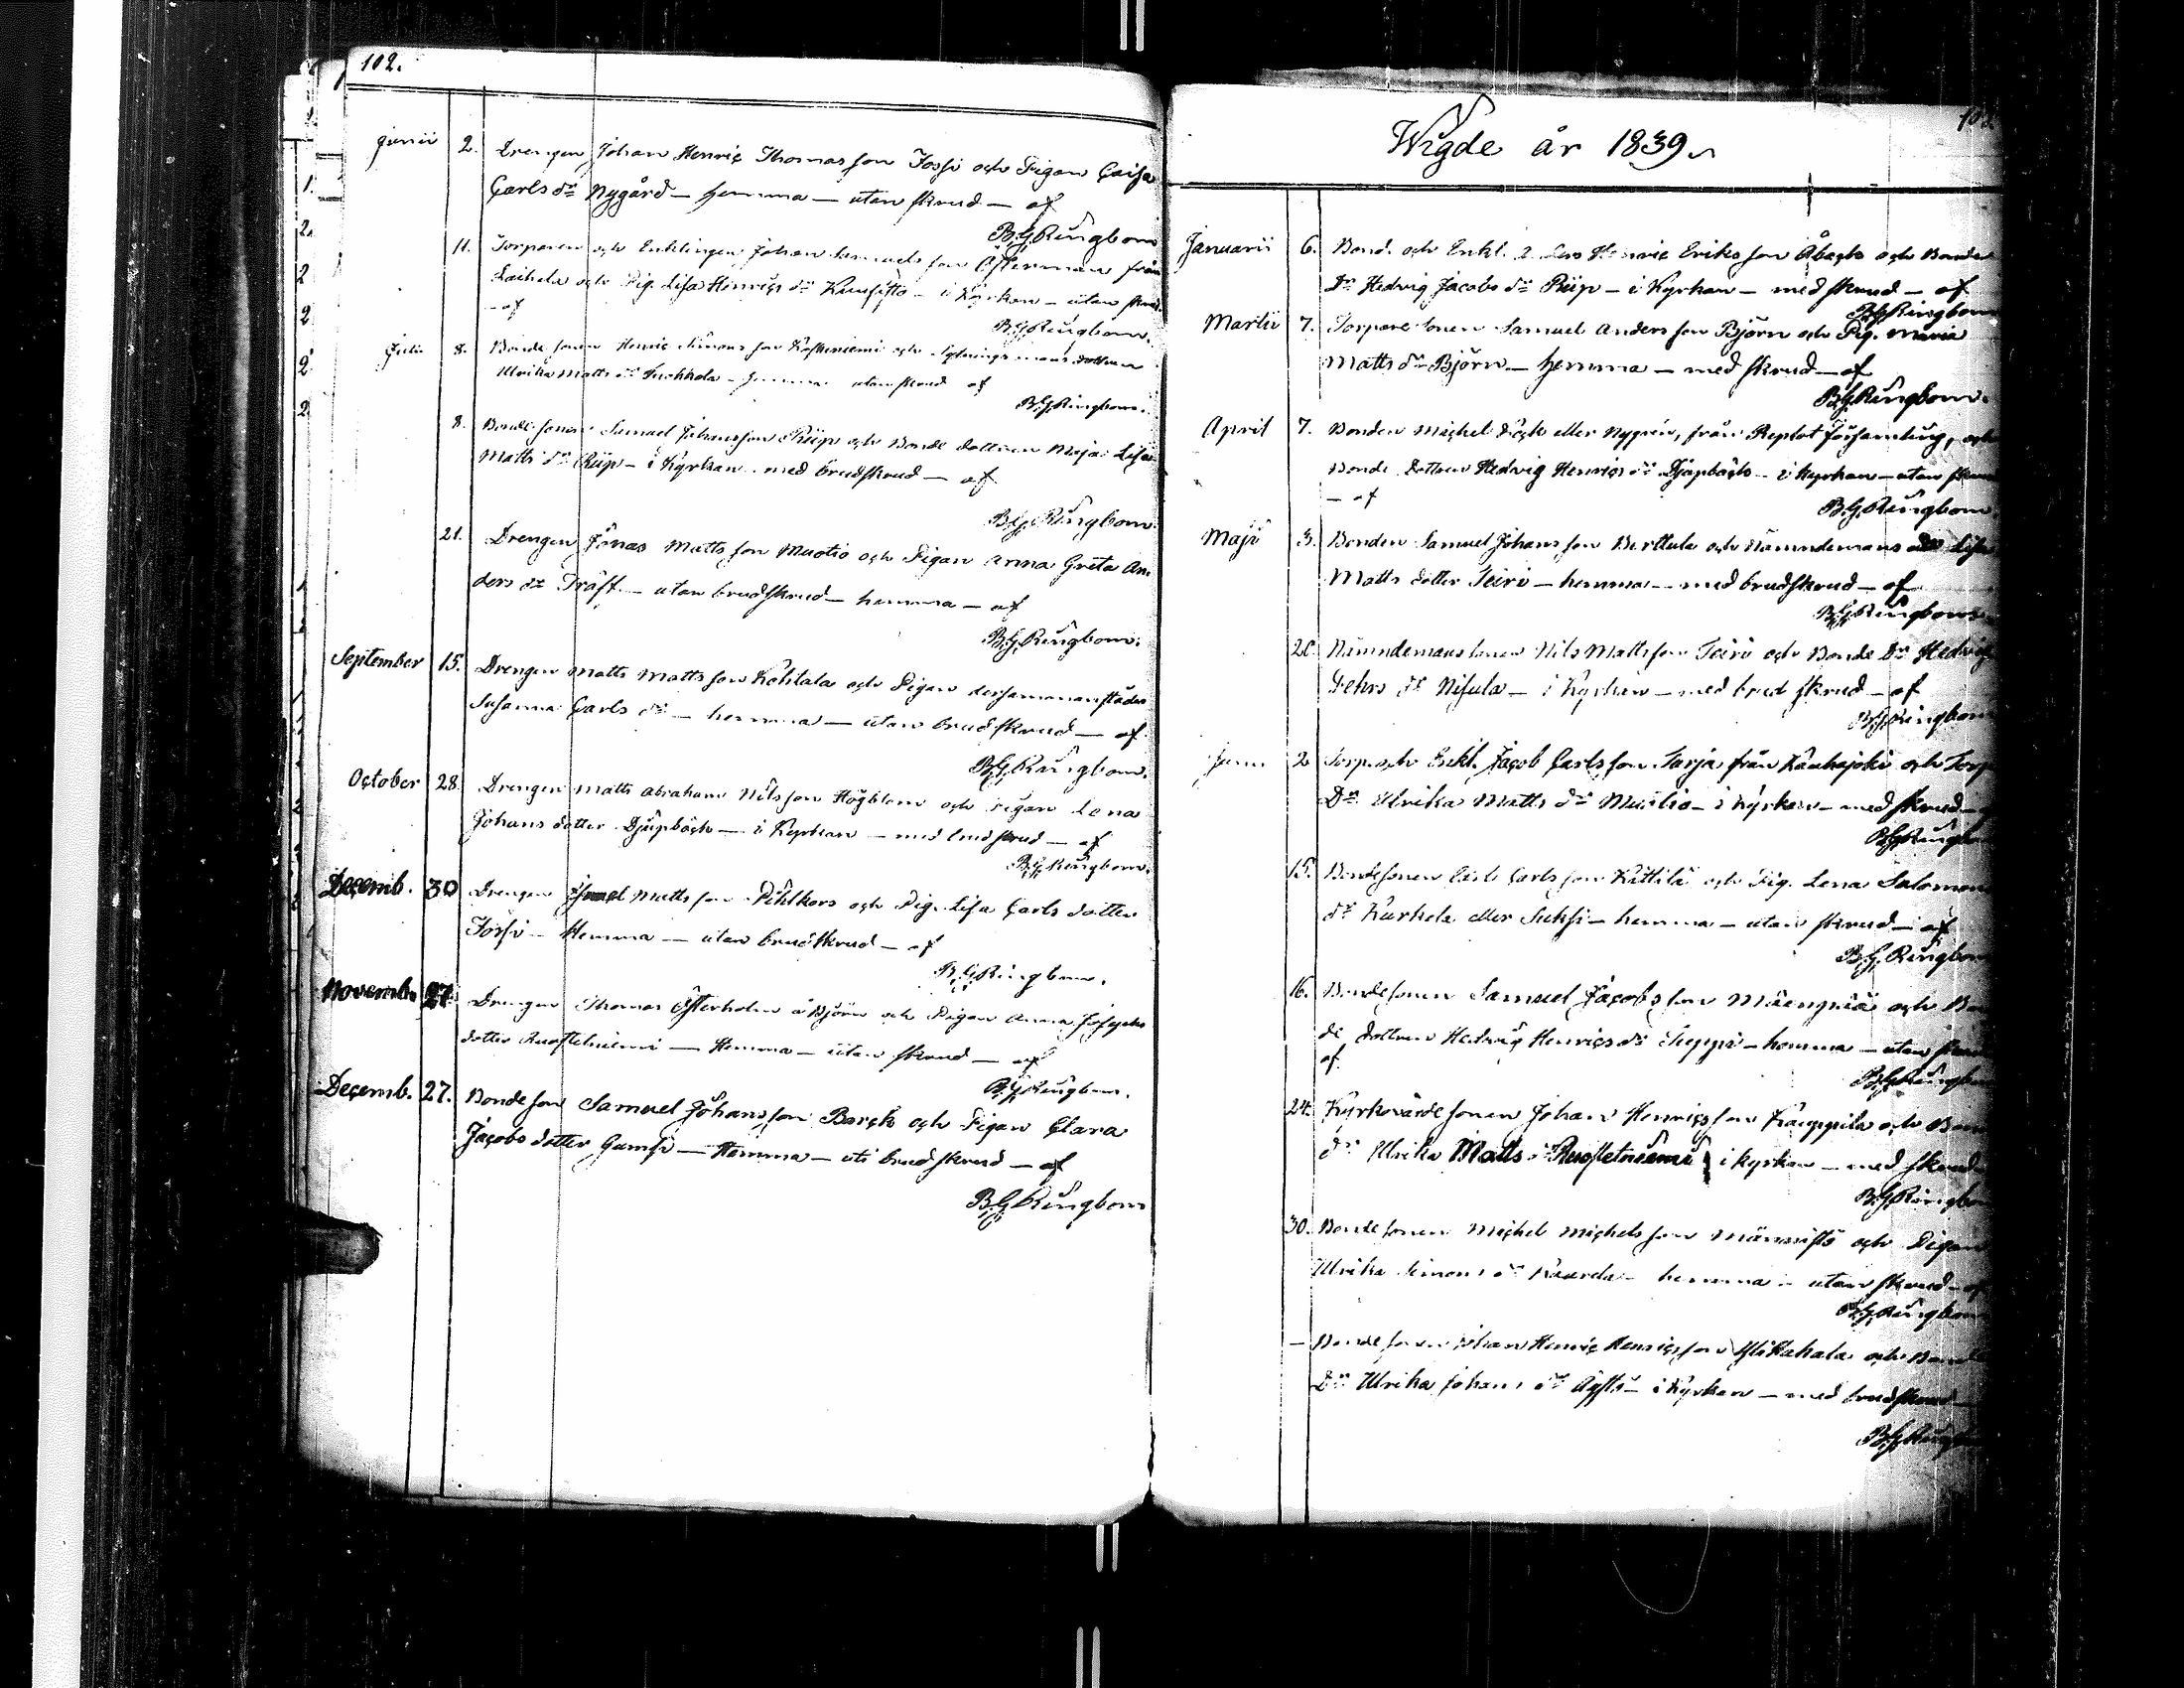 102.
Junii 2. Drengen Johan Henric Thomas son Jossi och Pigan Caisa
Carls dr Nygård — hemma — utan skrud — af
B.G. Ringbom
11. Torparen och Enklingen Johan Samuels son Österman från
Laihela och Pig. Lisa Henrics dr — i Kyrkan — utan skrud
— af
B.G. Ringbom.
Julii 8. Bonde sonen Henric Simons son Koskeniemi och dottren
Ulrika Matts dr — hemma utan skrud af
B.G. Ringbom.
8. Bonde sonen Samuel Johansson Riip och Bonde dottren Maja Lisa
Matts dr Riip — i Kyrkan med brudskrud — af
B.G. Ringbom.
21. Drengen Jonas Matts son Muotio och Pigan Anna Greta An
ders dr Träff — utan brudskrud — hemma — af
B.G. Ringbom.
September 15. Drengen Matts Matts son Kohtala och Pigan dersammanstädes
Susanna Carls dr — hemma — utan brudskrud — af
B.G. Ringbom.
October 28. Drengen Matts Abraham Nils son Högblom och Pigan Lena
Johans dotter Djupbäck — i Kyrkan — med brudskrud — af
B.G. Ringbom.
Decemb. 30 Drengen Matts son Pihlkars och Pig. Lisa Carls dotter
Jossi — Hemma — utan brudskrud — af
B.G. Ringbom.
Novemb. 27. Drengen Thomas Österholm å Björn och Pigan Anna Josephs
dotter Ruostetniemi — Hemma — utan skrud — af
B.G. Ringbom.
Decemb. 27. Bonde son Samuel Johans son Barck och Pigan Clara
Jacobs dotter Gamsi — Hemma — uti brudskrud — af
B.G. Ringbom
Wigde år 1839.
Januarii 6. Bond. och Enkl. Henric Eriks son Åback och Bonde
Dr Hedvig Jacobs dr Riip — i Kyrkan — med skrud — af
B.G. Ringbom
Martii 7. Torpare sonen Samuel Anders son Björn och Pig. Maria
Matts dr Björn — hemma — med skrud — af
B.G. Ringbom.
April 7. Bonden Michel Bäck eller Nygrén, från Replot församling, och
Bonde dottren Hedvig Henrics dr Djupbäck — i Kyrkan — utan skrud
— af
B.G. Ringbom.
Maji 3. Bonden Samuel Johans son Berttula och Nämndemans Lisa
Matts dotter Teiri — hemma — med brudskrud — af
B.G. Ringbom
20. Nämndemans sonen Nils Matts son Teiri och Bonde Dr Hedvig
Pehrs dr Nisula — i Kyrkan — med brud skrud — af
B.G. Ringbom
Junii 2 Torp. och Enkl. Jacob Carls son Sarja från Kauhajoki och Torp
Dr Ulrika Matts dr Muotio — i Kyrkan — med skrud —
B.G. Ringbom
15. Bonde sonen Carls son Kättilä och Pig. Lena Salomons
dr Kurhela eller Suksi — hemma — utan skrud — af
B.G. Ringbom
16. Bonde sonen Samuel Jacobs son Mäenpää och Bon
de dottren Hedvig Henrics dr Seppi — hemma — utan skrud
af
B.G. Ringbom
24. Kyrkovärde sonen Johan Henrics son Kauppila och Bonde
dr Ulrika Matts dr Ruostetniemi i kyrkan — med skrud
B.G. Ringbom
30. Bonde sonen Michel Michels son Männistö och Pigan
Ulrika Simons dr — hemma — utan skrud — af
B.G. Ringbom
— Bonde sonen Johan Henric Henrics son Yli Kahala och Bonde
Dr Ulrika Johans dr — i Kyrkan — med brudskrud —
B.G. Ringbom